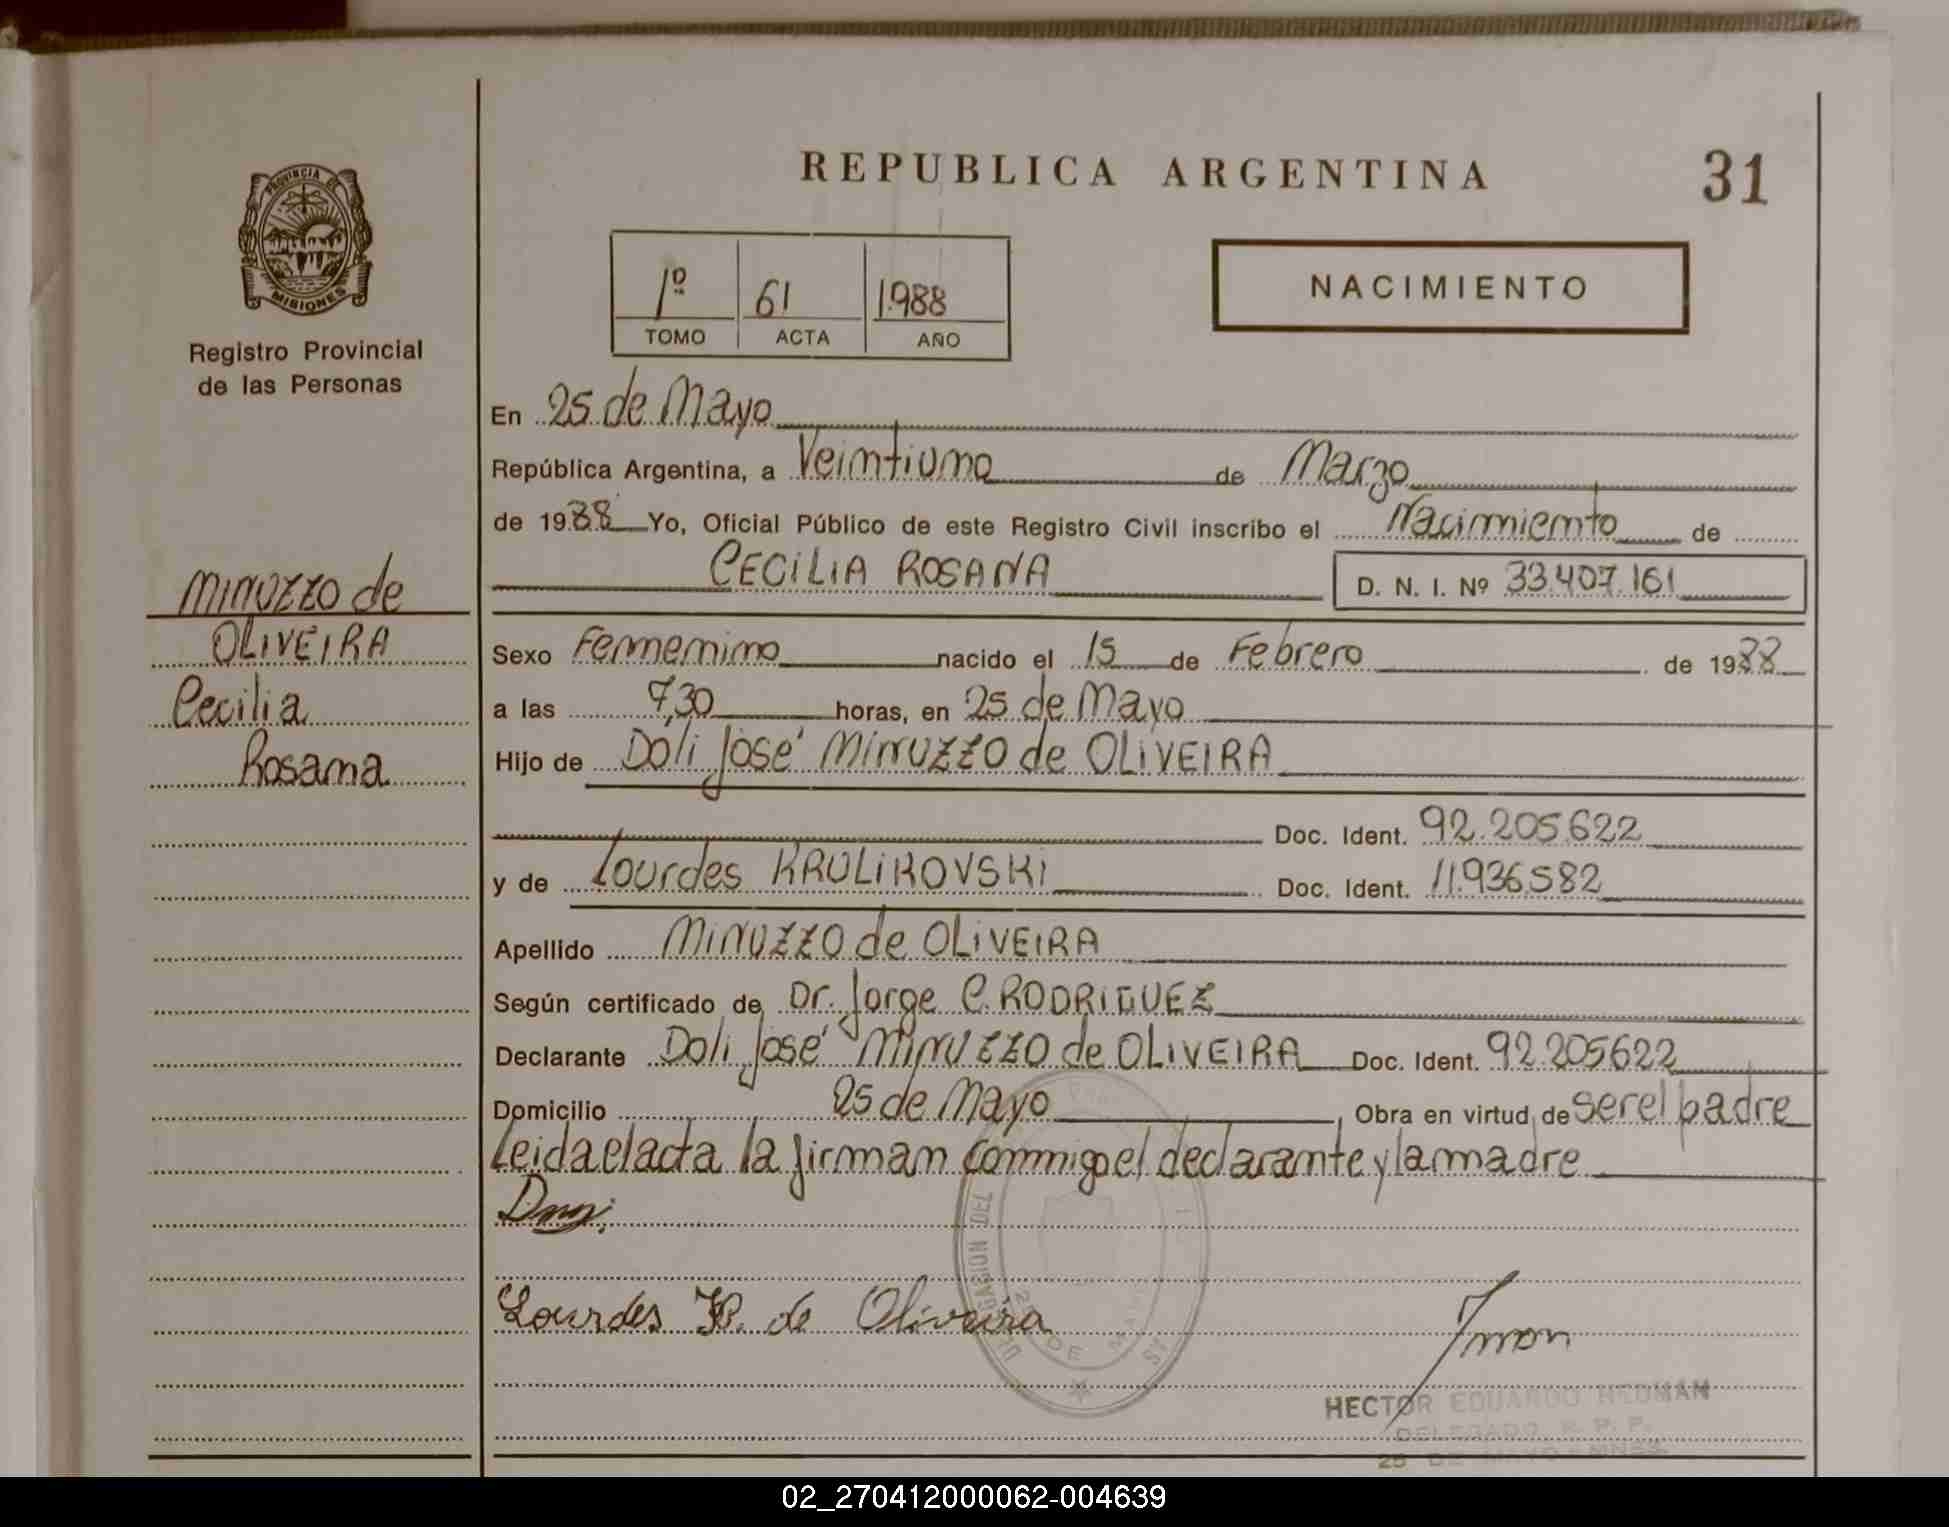 REPUBLICA ARGENTINA
31
PROVINCIA DE
MISIONES
Registro Provincial
de las Personas
1º 61 1988
TOMO ACTA AÑO
NACIMIENTO
En 25 de Mayo
República Argentina, a Veintiuno de Marzo
de 1988 Yo, Oficial Público de este Registro Civil inscribo el Nacimiento de
CECILIA ROSANA D. N. I. Nº 33.407.161
MINUZZO de
OLIVEIRA
Cecilia
Rosana
Sexo Femenino nacido el 15 de Febrero de 1988
a las 7,30 horas, en 25 de Mayo
Hijo de Doli José MINUZZO de OLIVEIRA
Doc. Ident. 92.205.622
y de Lourdes KRULIKOVSKI Doc. Ident. 11.936.582
Apellido MINUZZO de OLIVEIRA
Según certificado de Dr. Jorge C. RODRIGUEZ
Declarante Doli José MINUZZO de OLIVEIRA Doc. Ident. 92.205622
Domicilio 25 de Mayo, Obra en virtud de ser el padre
Leida el acta la firman conmigo el declarante y la madre
Lourdes K. de Oliveira
HECTOR EDUARDO NEDMAN
DELEGADO R. P. P.
25 DE MAYO - MNES.
02_270412000062-004639